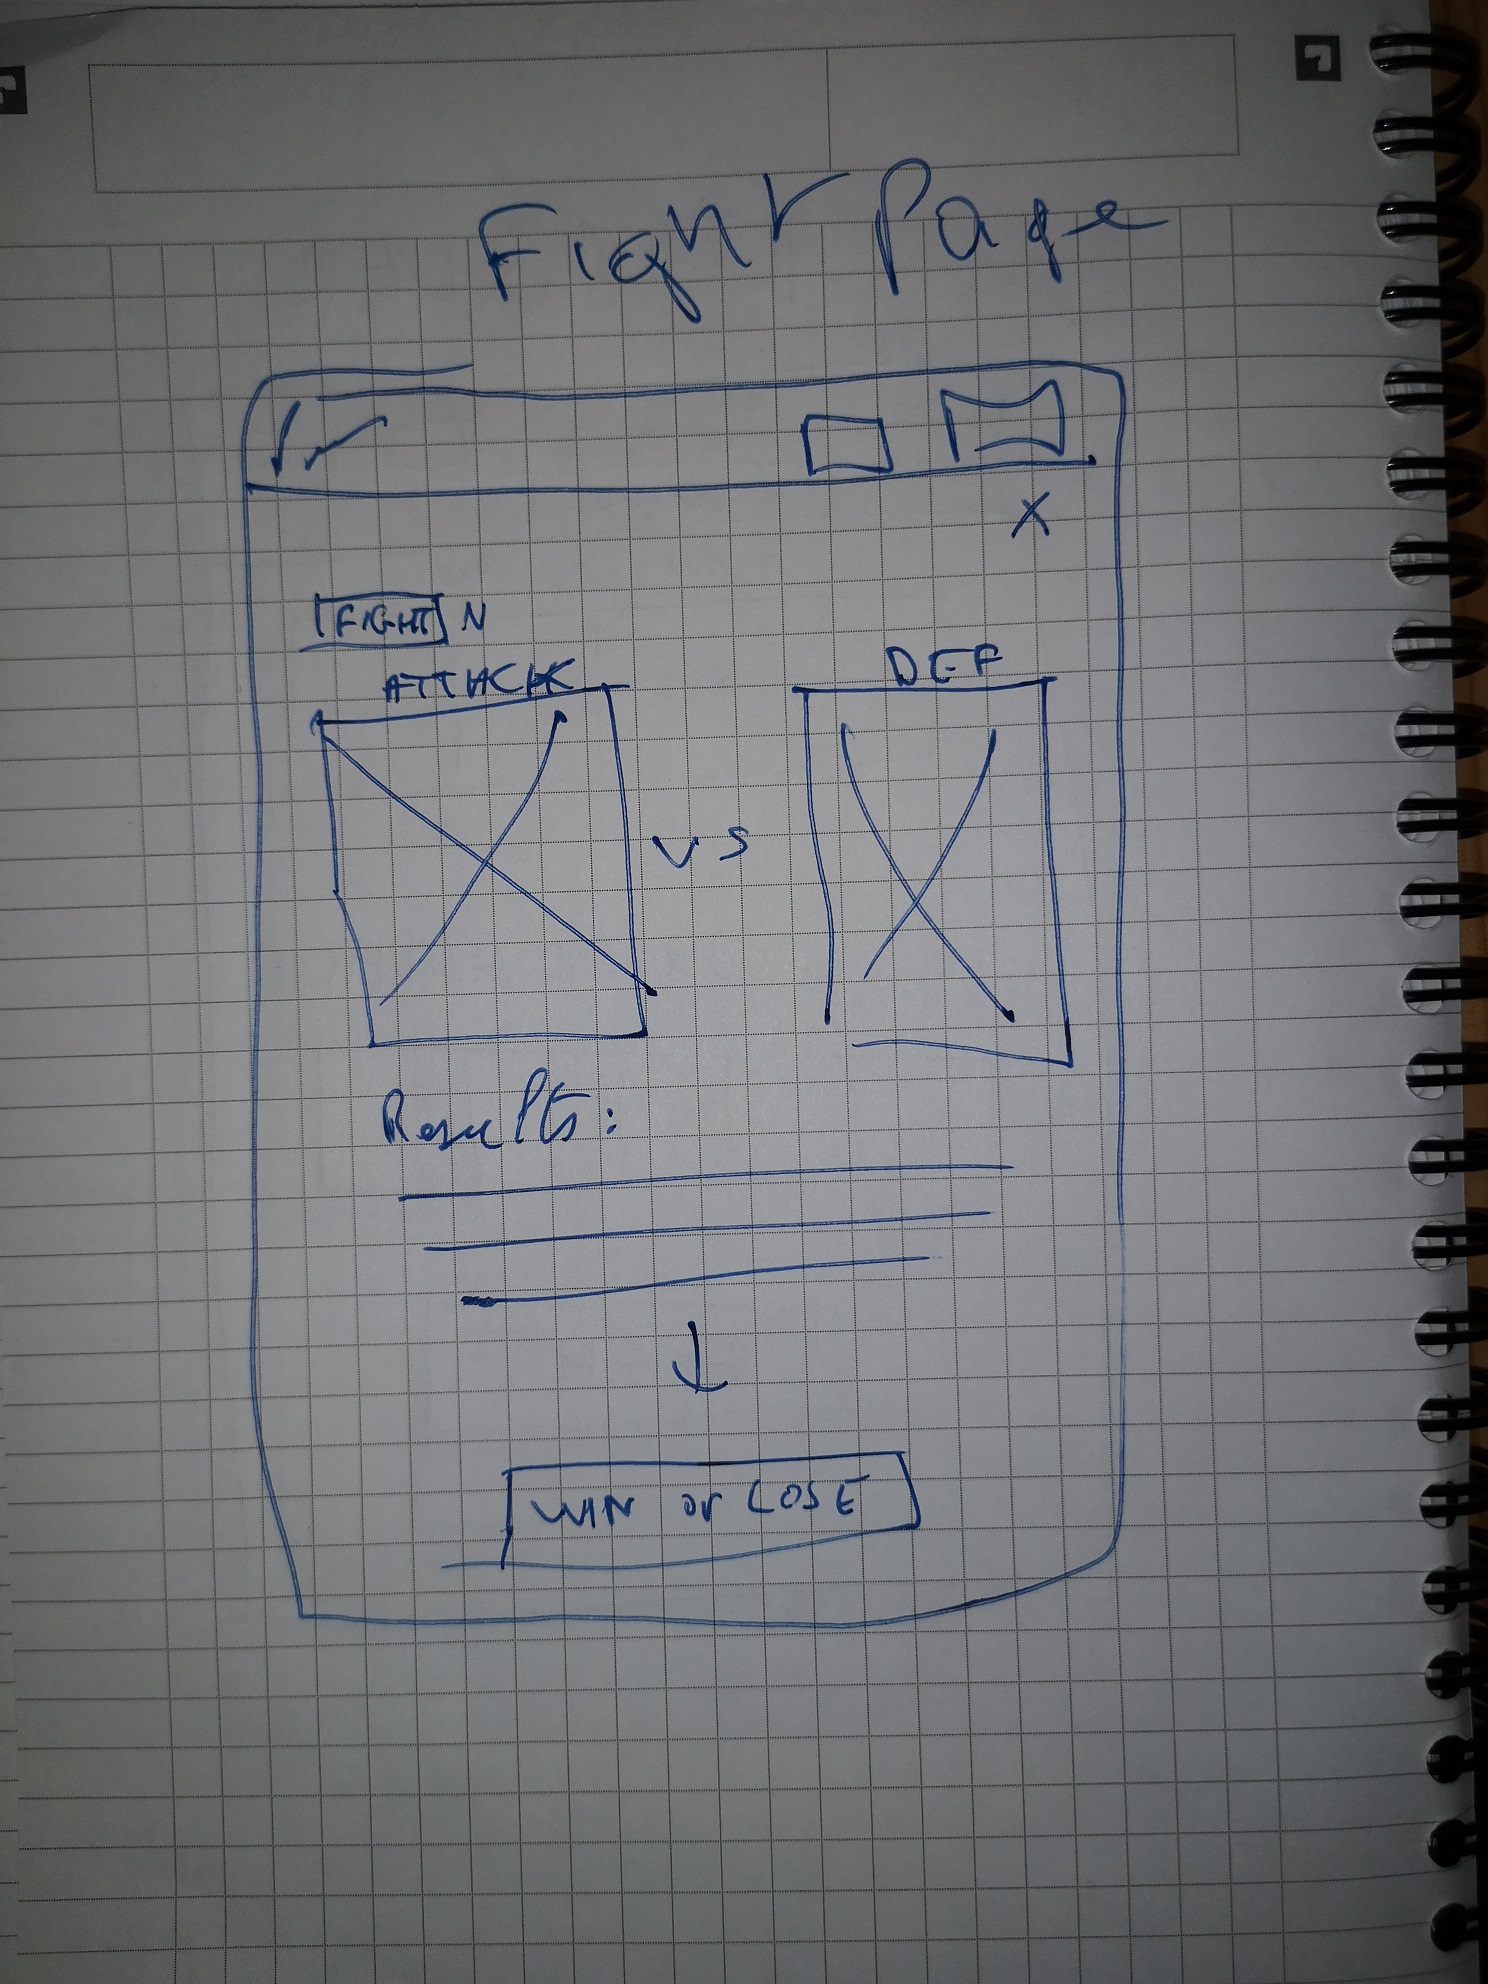 Fight Page
X
FIGHT N
ATTACK
DEF
VS
Results:
WIN or LOSE